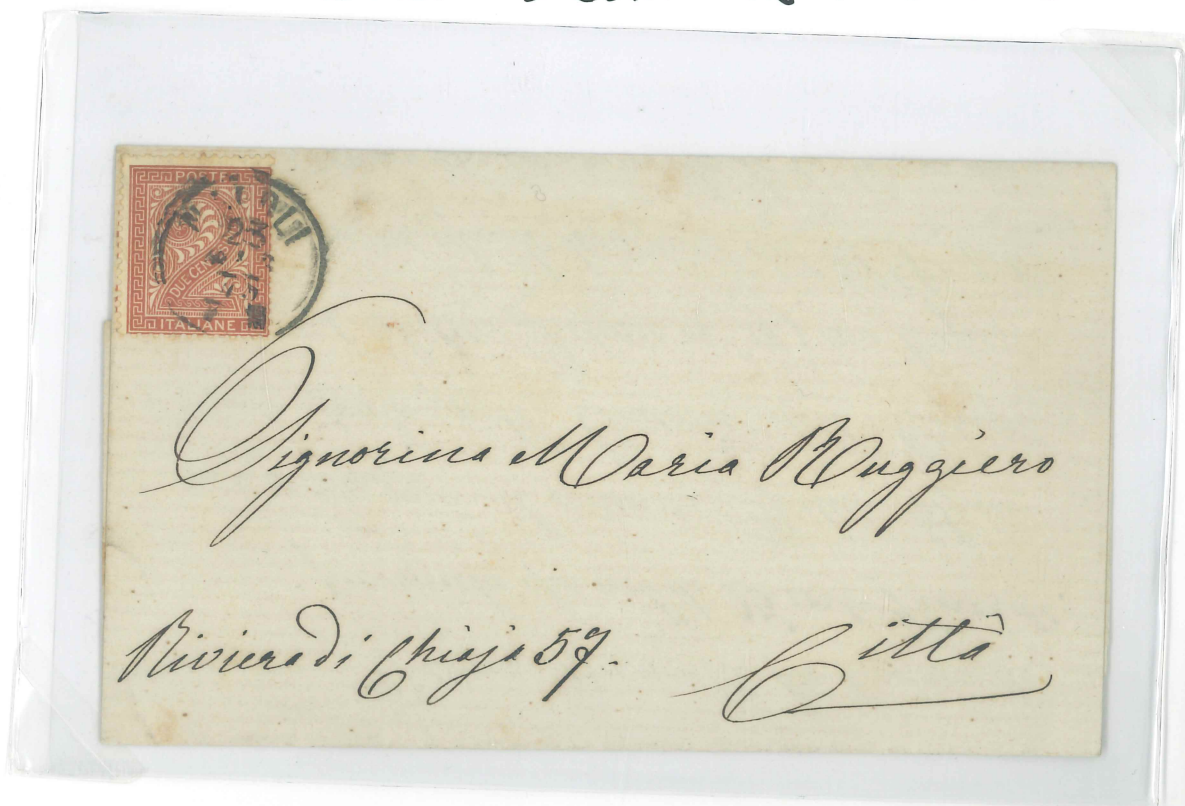 POSTE
DUE CENT
ITALIANE
23
Signorina Maria Ruggiero
Riviera di Chiaja 57.
Città